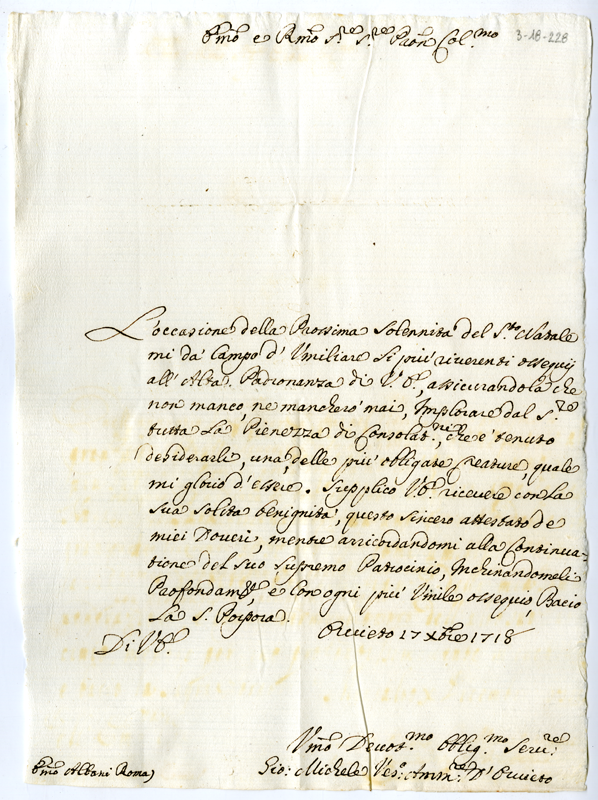 Emo e Rmo Sre Sre Pron Col.mo
3-18-228
L'occasione della Prossima Solennità del S.to Natale
mi dà Campo d'Umiliare li più riverenti ossequij
all'Alta Padronanza di V.E., assicurandola che
non manco, ne mancherò mai, Implorare dal S.re
tutta la Pienezza di Consolat.ni, che è tenuto
desiderarle, una delle più obligate Creature, quale
mi glorio d'essere. Supplico V.E. ricevere con la
sua solita benignità, questo sincero attestato de
miei Doveri, mentre arricordandomi alla Continua-
tione del suo supremo Patrocinio, Inchinandomeli
Profondam.te, e con ogni più Umile ossequio, Bacio
la S. Porpora.
Orvieto 17 Xbre 1718
Di V.E.
Umo Devot.mo Oblig.mo Serv.re
Gio: Michele Ves.o Amm.re D'Orvieto
Emo Albani Roma)